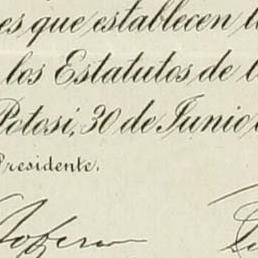 es que establecen l
los Estatutos de l
Potosi, 30 de Junio
Presidente.